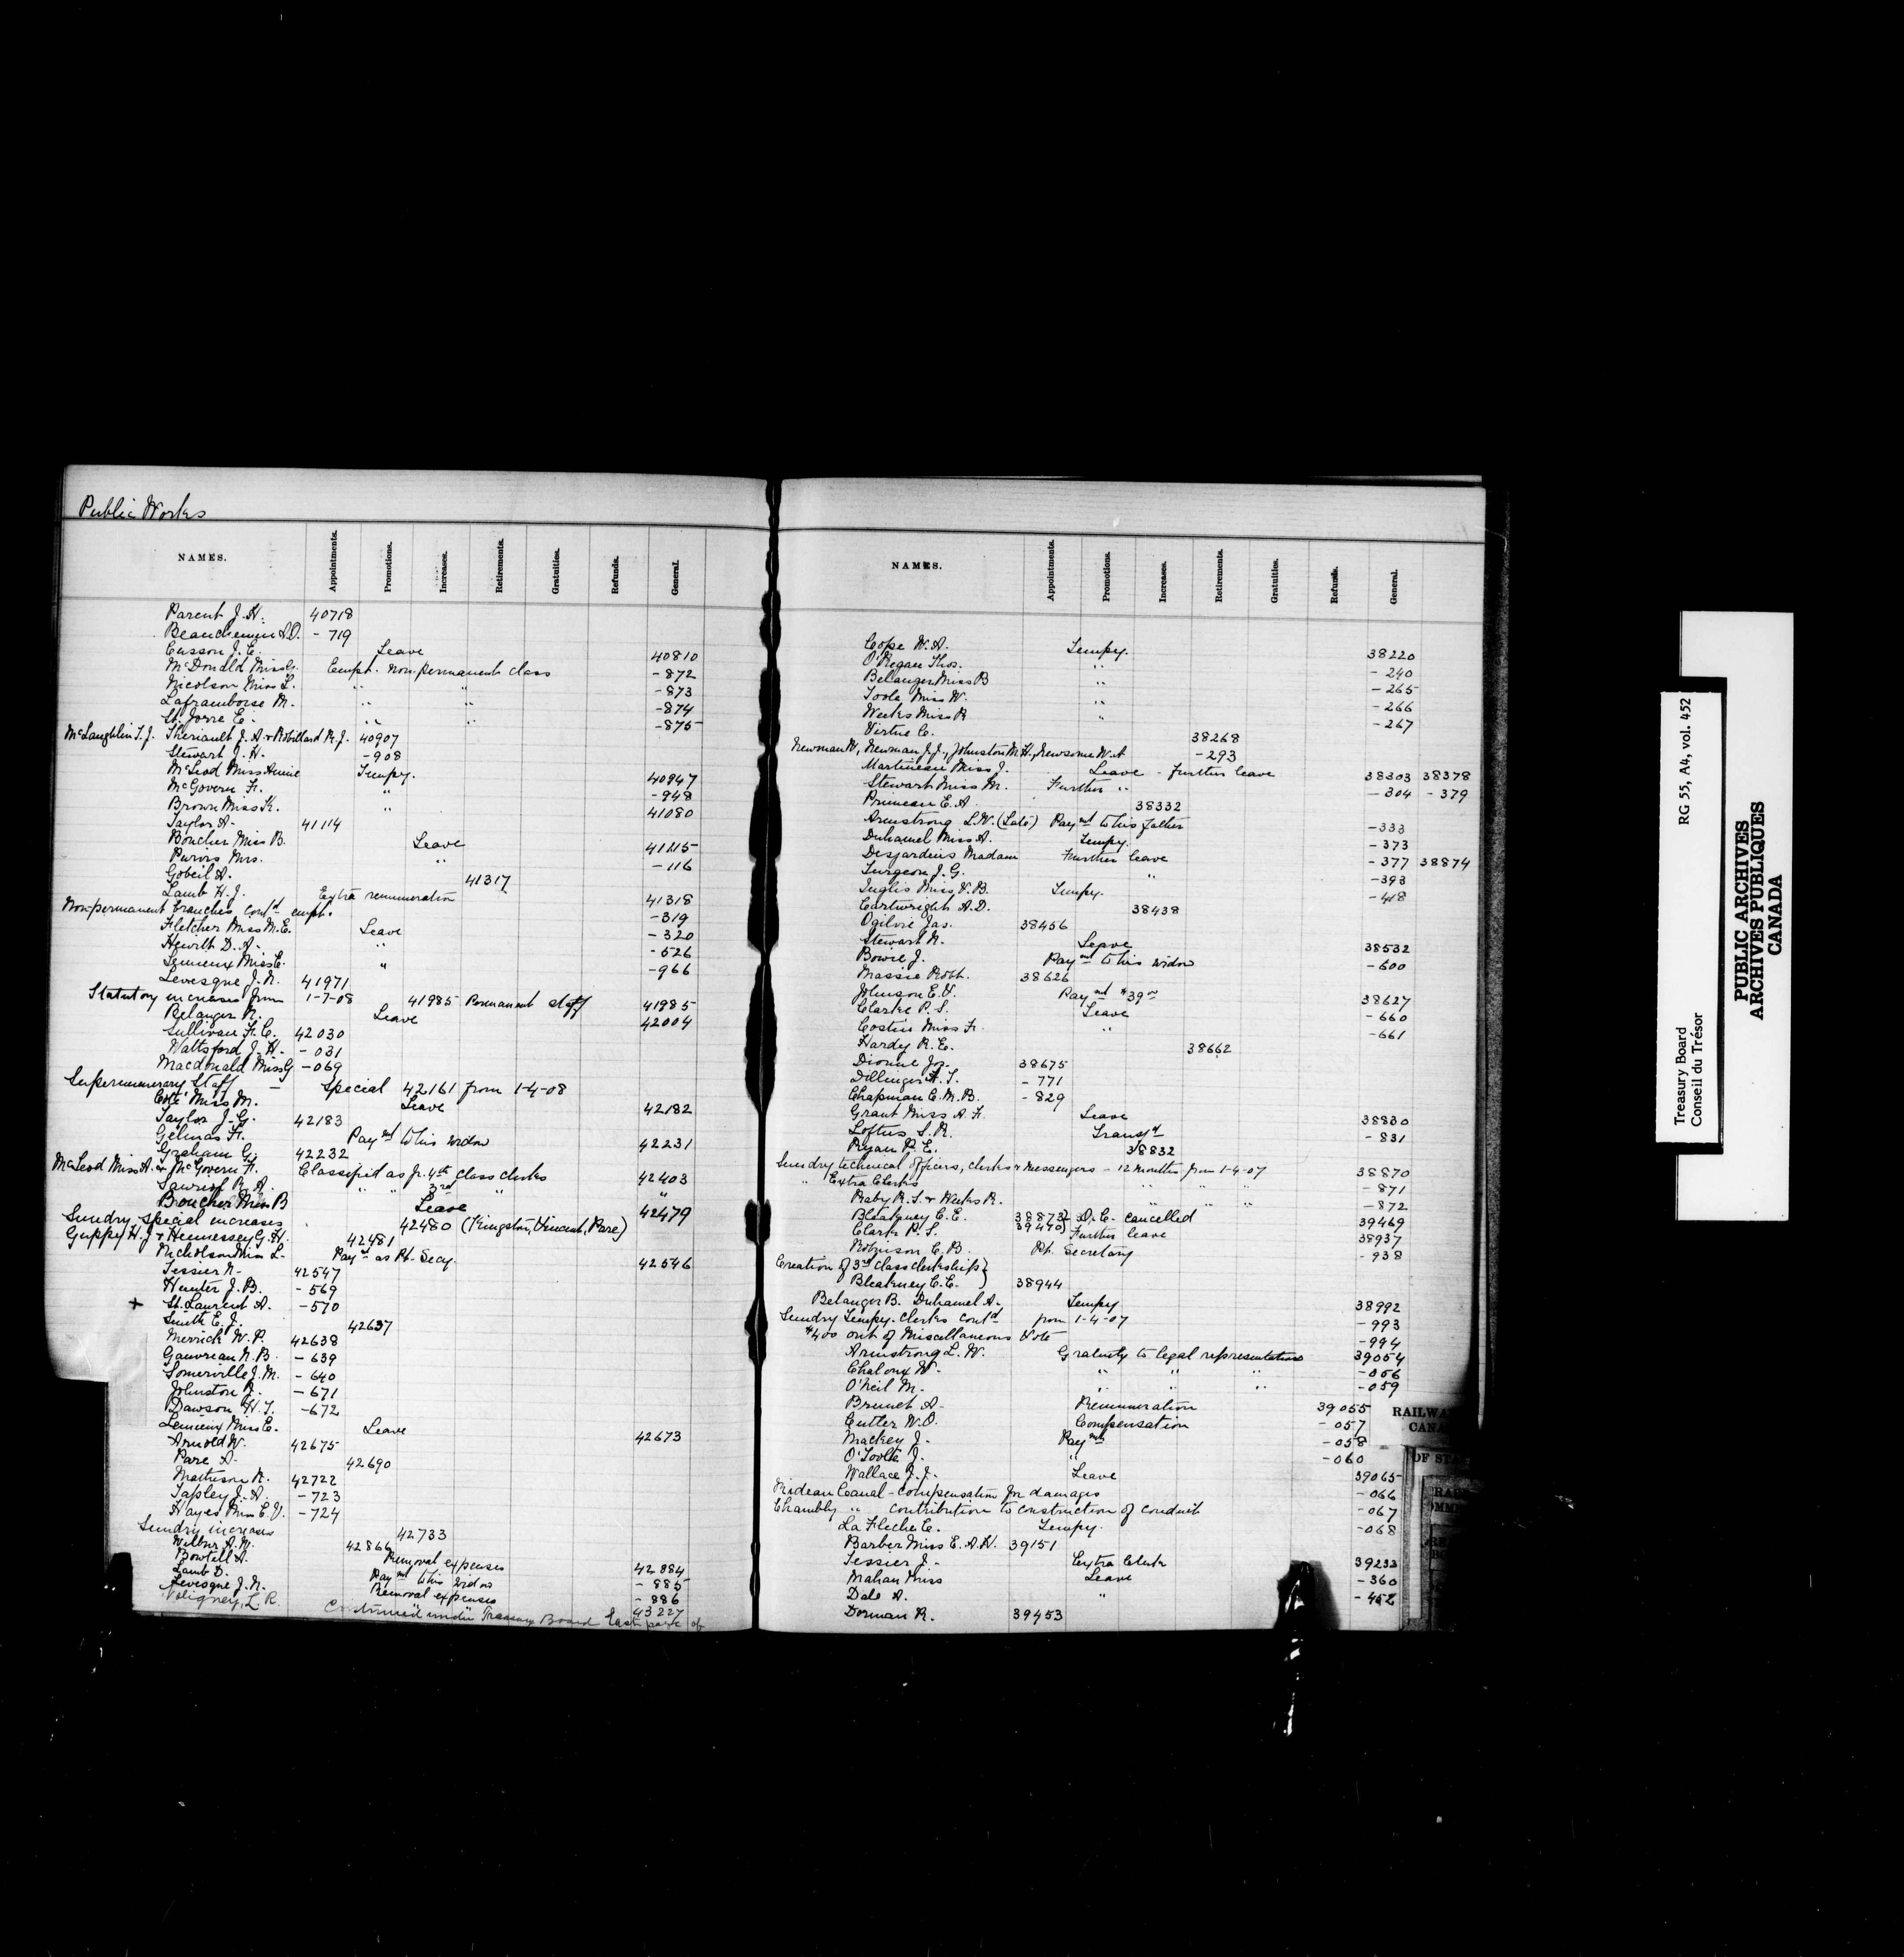 Public Works
NAMES. Appointments. Promotions. Increases. Retirements. Gratuities. Refunds. General.
Parent J. H. 40718
Beauchemin A.D. - 719
Cusson J. E. Leave 40810
McDonald Miss G. Empt. non-permanent class - 872
Nicolson Miss L. " " - 873
Laframboise M. " " - 874
St. Jorre E. " " - 875
McLaughlin T. J. Theriault J. A. & Robillard R. J. 40907
Stewart J. H. - 908
McLeod Miss Annie Tempy. 40947
McGovern F. " - 948
Brown Miss K. " 41080
Taylor A. 41114
Boucher Miss B. Leave 41115
Purvis Mrs. " - 116
Gobeil A. 41317
Lamb H. J. Extra remuneration 41318
Non-permanent branches cont'd empt. - 319
Fletcher Miss M. E. Leave - 320
Hewitt D. A. " - 526
Lemieux Miss E. " - 966
Levesque J. N. 41971
Statutory increases from 1-7-08 41985 Permanent staff 41985
Belanger N. Leave 42004
Sullivan F. C. 42030
Wattsford J. H. - 031
Macdonald Miss G - 069
Supernumerary Staff - Special 42161 from 1-4-08
Coté Miss M. Leave 42182
Taylor J. G. 42183
Gelinas F. Paymt to his widow 42231
Graham G. 42232
McLeod Miss A. & McGovern F. Classified as Jr. 4th class clerks 42403
R. A. " " 3rd " " "
Boucher Miss B Leave 42479
Sundry special increases 42480 (Kingston, Vincent, Pare)
Guppy H. J. & Hennessey G. H. 42481
Nicholson Miss L. Payt as Pt. Secy. 42546
Tessier N. 42547
Hunter J. B. - 569
+ St. Laurent A. - 570
Smith E. J. 42637
Merrick W. P. 42638
Gauvreau N. B. - 639
Somerville J. M. - 640
Johnston J. - 671
Dawson H. J. - 672
Lemieux Miss E. Leave 42673
Arnold W. 42675
Pare A. 42690
Matheson N. 42722
Tapley J. A. - 723
Hayes Miss E. V. - 724
Sundry increases 42733
Wilbur A. M. 42866
Bowtell A. Removal expenses 42884
Lamb D. Paymt to his widow - 885
Levesque J. N. Removal expenses - 886
L. R. 43227
Continued under Treasury Board last part of
NAMES. Appointments. Promotions. Increases. Retirements. Gratuities. Refunds. General.
Cope W. A. Tempy. 38220
O'Regan Thos. " - 240
Belanger Miss B " - 265
Toole Miss W. " - 266
Weeks Miss R " - 267
Virtue C. 38268
Newman W, Newman J. J., Johnston M. H., Newsome W. A - 293
Martineau Miss J. Leave - Further leave 38303 38378
Stewart Miss M. Further " - 304 - 379
Primeau E. A. 38332
Armstrong L. W. (Late) Paymt to his father - 333
Duhamel Miss A. Tempy. - 373
Desjardins Madam Further leave - 377 38874
Turgeon J. G. " - 393
Inglis Miss V. B. Tempy. - 418
Cartwright A. D. 38438
Ogilvie Jas. 38456
Stewart N. Leave 38532
Bowie J. Paymt to his widow - 600
Massie Robt. 38626
Johnson E. V. Paymt $39 00 38627
Clarke P. S. Leave - 660
Costin Miss F. " - 661
Hardy R. E. 38662
Dionne Jos. 38675
Dillinger F. T. - 771
Chapman E. M. B. - 829
Grant Miss A. F. Leave 38830
Loftus S. R. Transfd - 831
Ryan P. E. 38832
Sundry technical officers, clerks & messengers - 12 months from 1-4-07 38870
" Extra Clerks " " " - 871
Raby R. S. & Weeks R. " " " - 872
Bleakney C. E. 38873 39470 } O. C. cancelled 39469
Clark P. S. Further leave 38937
Robinson C. B. Pt. Secretary - 938
Creation of 3rd class clerkship }
Bleakney C. E. } 38944
Belanger B. Duhamel A. Tempy 38992
Sundry Tempy. clerks cont'd from 1-4-07 - 993
$400 out of Miscellaneous Vote - 994
Armstrong L. W. Gratuity to legal representatives 39054
Chaloux W. " " " - 056
O'Neil M. " " " - 059
Brunet A. Remuneration 39055
Cutler W. O. Compensation - 057
Mackey J. Paymt - 058
O'Toole J. " - 060
Wallace J. J. Leave 39065
Rideau Canal - compensation for damages - 066
Chambly " contribution to construction of conduit - 067
La Fleche E. Tempy. - 068
Barber Miss E. A. H. 39151
Tessier J. Extra Clerk 39233
Mahan Miss Leave - 360
Dale A. " - 452
Dorman R. 39453
RAILWA
CANA
OF STA
Treasury Board RG 55, A4, vol. 452
Conseil du Trésor
PUBLIC ARCHIVES
ARCHIVES PUBLIQUES
CANADA